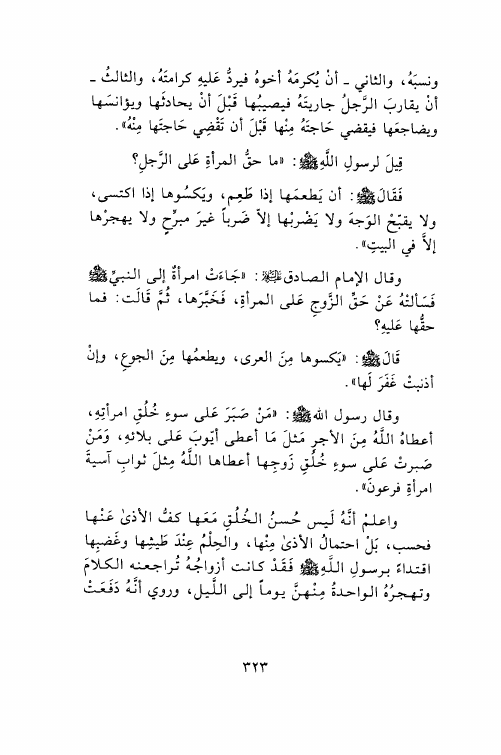 ونسبَهُ، والثاني ـ أنْ يُكرمَهُ أخوهُ فيردُّ عَليهِ كرامتَهُ، والثالثُ ـ
أنْ يقاربَ الرَّجلُ جاريتَهُ فيصيبُها قَبْلَ أنْ يحادثَها ويؤانسَها
ويضاجعَها فيقضي حَاجتَهُ مِنْها قَبْلَ أن تَقْضِي حَاجتَها مِنْهُ».
قِيلَ لرسولِ اللَّهِ ﷺ: «ما حقُّ المرأةِ عَلى الرَّجلِ؟
فَقَالَ ﷺ: أن يَطعمَها إذا طَعِم، ويَكسُوها إذا اكتسى،
ولا يقبّحْ الوَجهَ ولا يَضْربْها إلاَّ ضَرباً غيرَ مبرِّحٍ ولا يهجرْها
إلاَّ في البيتِ».
وقال الإمام الصادق: «جَاءَتْ امرأةٌ إلى النبيِّ ﷺ
فَسَألتْهُ عَنْ حَقِّ الزَّوجِ عَلى المرأةِ، فَخَبَّرَها، ثُمَّ قَالَت: فما
حقُّها عَليهِ؟
قَالَ ﷺ: «يَكسوها مِنَ العرى، ويطعمُها مِنَ الجوعِ، وإنْ
أذنبتْ غَفَرَ لَها».
وقال رسول الله ﷺ: «مَنْ صَبَرَ عَلى سوءِ خُلُقِ امرأتِهِ،
أعطاهُ اللَّهُ مِنَ الأجرِ مَثلَ مَا أعطى أيّوبَ عَلى بلائهِ، وَمَنْ
صَبرتْ عَلى سوءِ خُلُقِ زَوجِها أعطاها اللَّهُ مِثلَ ثوابِ آسيةَ
امرأةِ فرعونَ».
واعلمْ أنَّهُ لَيس حُسنُ الخُلُقِ مَعَها كفُّ الأذىٰ عَنْها
فحسب، بَلْ احتمالُ الأذىٰ مِنْها، والحِلْمُ عِنْدَ طَيشِها وغَضبِها
اقتداءً برسولِ اللَّهِ ﷺ فَقَدْ كانت أزواجُهُ تُراجعنه الكلامَ
وتهجرُهُ الواحدةُ مِنْهنَّ يوماً إلى اللَّيل، وروي أنَّهُ دَفَعَتْ
٣٢٣